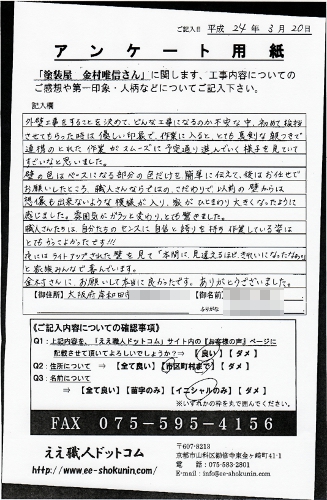 ご記入日 平成 24年 3月 20日
アンケート用紙
「塗装屋 金村唯信さん」に関します、工事内容についての
ご感想や第一印象・人柄などについてご記入下さい。
記入欄
外壁工事をすることを決めて、どんな工事になるのか不安な中、初めて挨拶
させてもらった時は優しい印象で、作業に入ると、とても真剣な顔つきで
連携のとれた作業がスムーズに予定通り進んでいく様子を見ていて
すごいなと思いました。
壁の色はベースになる部分の色だけを簡単に伝えて、後はお任せで
お願いしたところ、職人さんならではの、こだわりで以前の壁からは
想像も出来ないような模様が入り、家がひとまわり大きくなったように
感じました。雰囲気がガラッと変わり、とても驚きました。
職人さんたちは、自分たちのセンスに自信と誇りを持ち作業している姿は
とてもかっこよかったです!!!
夜にはライトアップされた壁を見て「本間に、見違えるほどきれいになったなぁ」
と家族みんなで喜んでいます。
金村さんに、お願いして本当に良かったです。ありがとうございました。
【御住所】 大阪府岸和田市
【御名前】
ふりがな
<ご記入内容についての確認事項>
Q1:上記内容を、「ええ職人ドットコム」サイト内の【お客様の声】ページに
掲載させて頂いてよろしいでしょうか?⇒【良い】【ダメ】
Q2:住所について ⇒【全て良い】【市区町村まで】【ダメ】
Q3:名前について
⇒【全て良い】【苗字のみ】【イニシャルのみ】【ダメ】
※いずれかの枠を丸で囲んでください。
FAX 075-595-4156
ええ職人ドットコム
http://www.ee-shokunin.com/
〒607-8213
京都市山科区勧修寺東金ヶ崎町41-1
電話:075-583-2801
E-mail:info@ee-shokunin.com